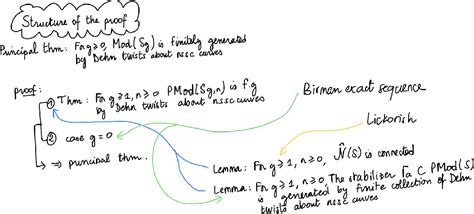 Structure of the proof
Principal thm: For g≥0, Mod(Sg) is finitely generated
by Dehn twists about nssc curves
proof:
① Thm: For g≥1, n≥0 PMod(Sg,n) is f.g
by Dehn twists about nssc curves
② case g=0
⇒ principal thm.
Birman exact sequence
Lickorish
Lemma: For g≥1, n≥0, N̂(S) is connected
Lemma: For g≥1, n≥0, The stabilizer Γa ⊂ PMod(S)
is generated by finite collection of Dehn
twists about nssc curves